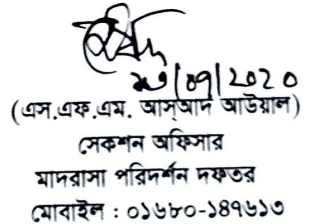 ২৩/০৭/2020
(এস.এফ.এম. আস্আদ আউয়াল)
সেকশন অফিসার
মাদরাসা পরিদর্শন দফতর
মোবাইল : ০১৬৮০-১৪৭৬১৩